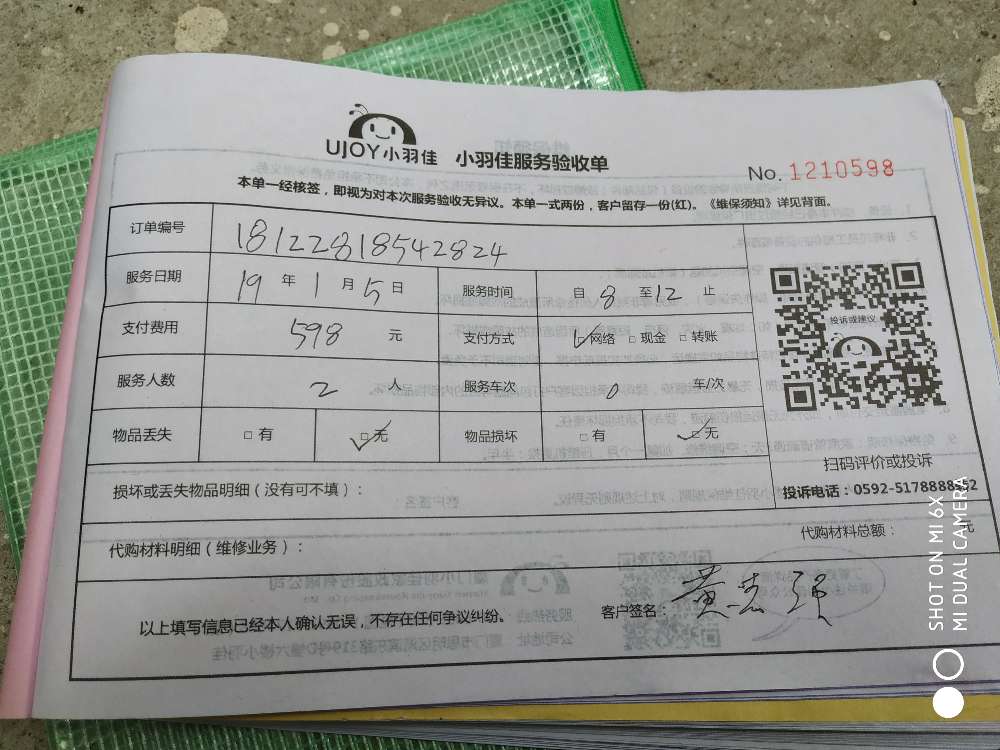 UJOY小羽佳 小羽佳服务验收单
No. 1210598
本单一经核签，即视为对本次服务验收无异议。本单一式两份，客户留存一份(红)。《维保须知》详见背面。
订单编号 18122818542824
服务日期 19 年 1 月 5 日 服务时间 自 8 至 12 止
支付费用 598 元 支付方式 ☑网络 □现金 □转账
投诉或建议
服务人数 2 人 服务车次 0 车/次
物品丢失 □有 ☑无 物品损坏 □有 ☑无
扫码评价或投诉
损坏或丢失物品明细（没有可不填）：
投诉电话：0592-5178888
代购材料明细（维修业务）： 代购材料总额： 元
以上填写信息已经本人确认无误，不存在任何争议纠纷。 客户签名：黄志
SHOT ON MI 6X
MI DUAL CAMERA